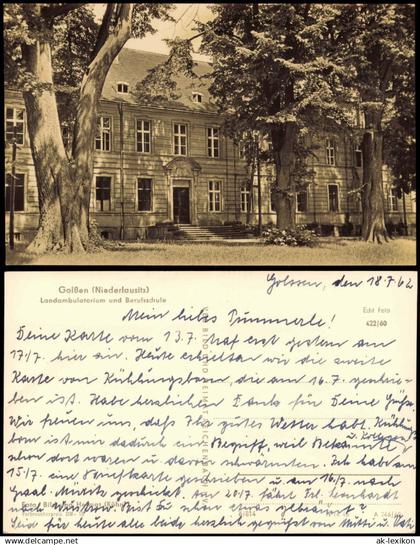 Golßen (Niederlausitz)
Landambulatorium und Berufsschule
Echt Foto
422/60
Golssen, den 18.7.62
Mein liebes Pummerle!
Deine Karte vom 13.7. traf erst gestern am
17.7. hier ein. Heute erhielten wir die zweite
Karte von Kühlungsborn, die am 16.7. geschrie-
ben ist. Habe herzlichen Dank für Deine Grüße
Wir freuen uns, daß Ihr gutes Wetter habt. Kühlungs-
born ist mir dadurch ein Begriff, weil Bekannte
u.
schon dort waren u. davon schwärmten. Ich habe am
15.7. eine Briefkarte geschrieben u. am 16.7. nach
geschickt. Am 20.7. fährt Frl. Leonhardt
Bist Du schon etwas gebräunt?
Seid für heute alle beide herzlich gegrüßt von Mutti u. Vati
A 746/60
© ak-lexikon